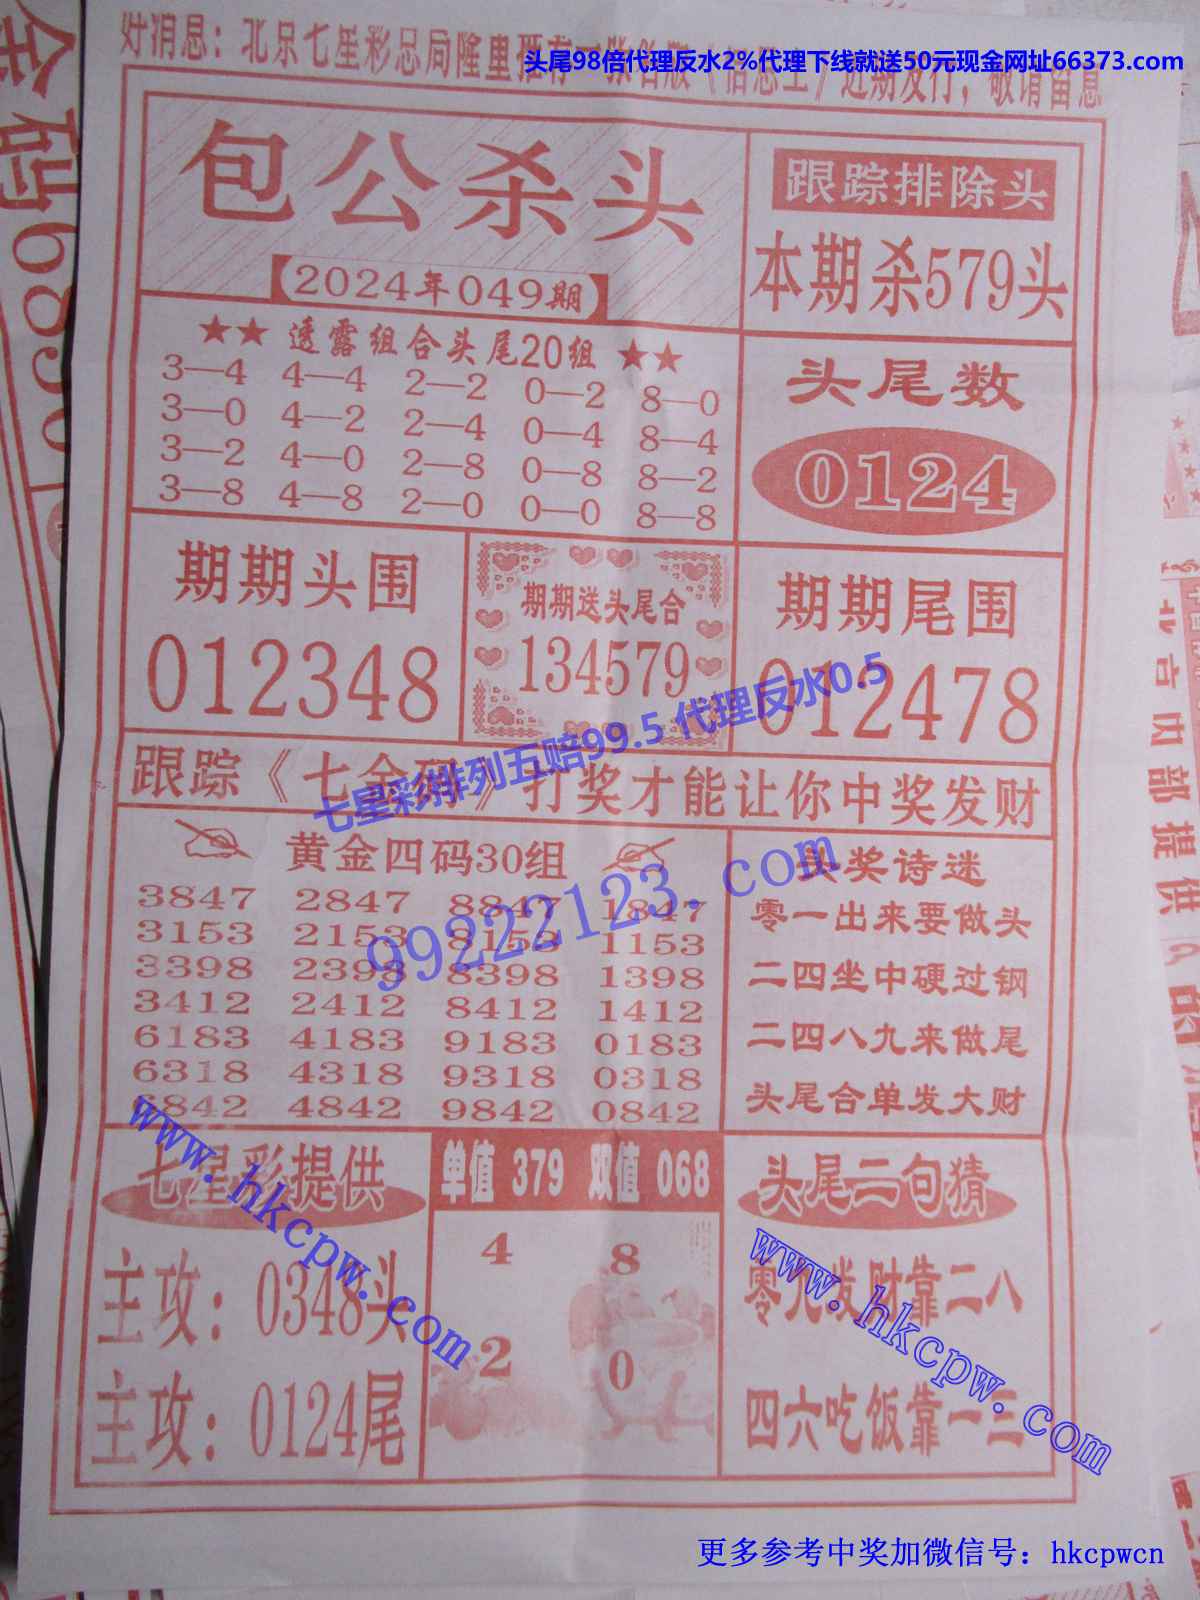 头尾98倍代理反水2%代理下线就送50元现金网址66373.com
好消息：北京七星彩总局隆重推荐
近期发行，敬请留意
包公杀头
【2024年049期】
跟踪排除头
本期杀579头
★★ 透露组合头尾20组 ★★
3—4 4—4 2—2 0—2 8—0
3—0 4—2 2—4 0—4 8—4
3—2 4—0 2—8 0—8 8—2
3—8 4—8 2—0 0—0 8—8
头尾数
0124
期期头围
012348
期期送头尾合
134579
期期尾围
012478
七星彩排列五赔99.5 代理反水0.5
跟踪《七金码》打奖才能让你中奖发财
黄金四码30组
3847 2847 8847 1847
3153 2153 8153 1153
3398 2398 8398 1398
3412 2412 8412 1412
6183 4183 9183 0183
6318 4318 9318 0318
6842 4842 9842 0842
99222123.com
头奖诗迷
零一出来要做头
二四坐中硬过钢
二四八九来做尾
头尾合单发大财
七星彩提供
主攻：0348头
主攻：0124尾
www.hkcpw.com
单值 379 双值 068
4 8
2 0
头尾二句猜
零九发财靠二八
四六吃饭靠一三
www.hkcpw.com
更多参考中奖加微信号：hkcpwcn
全码6850